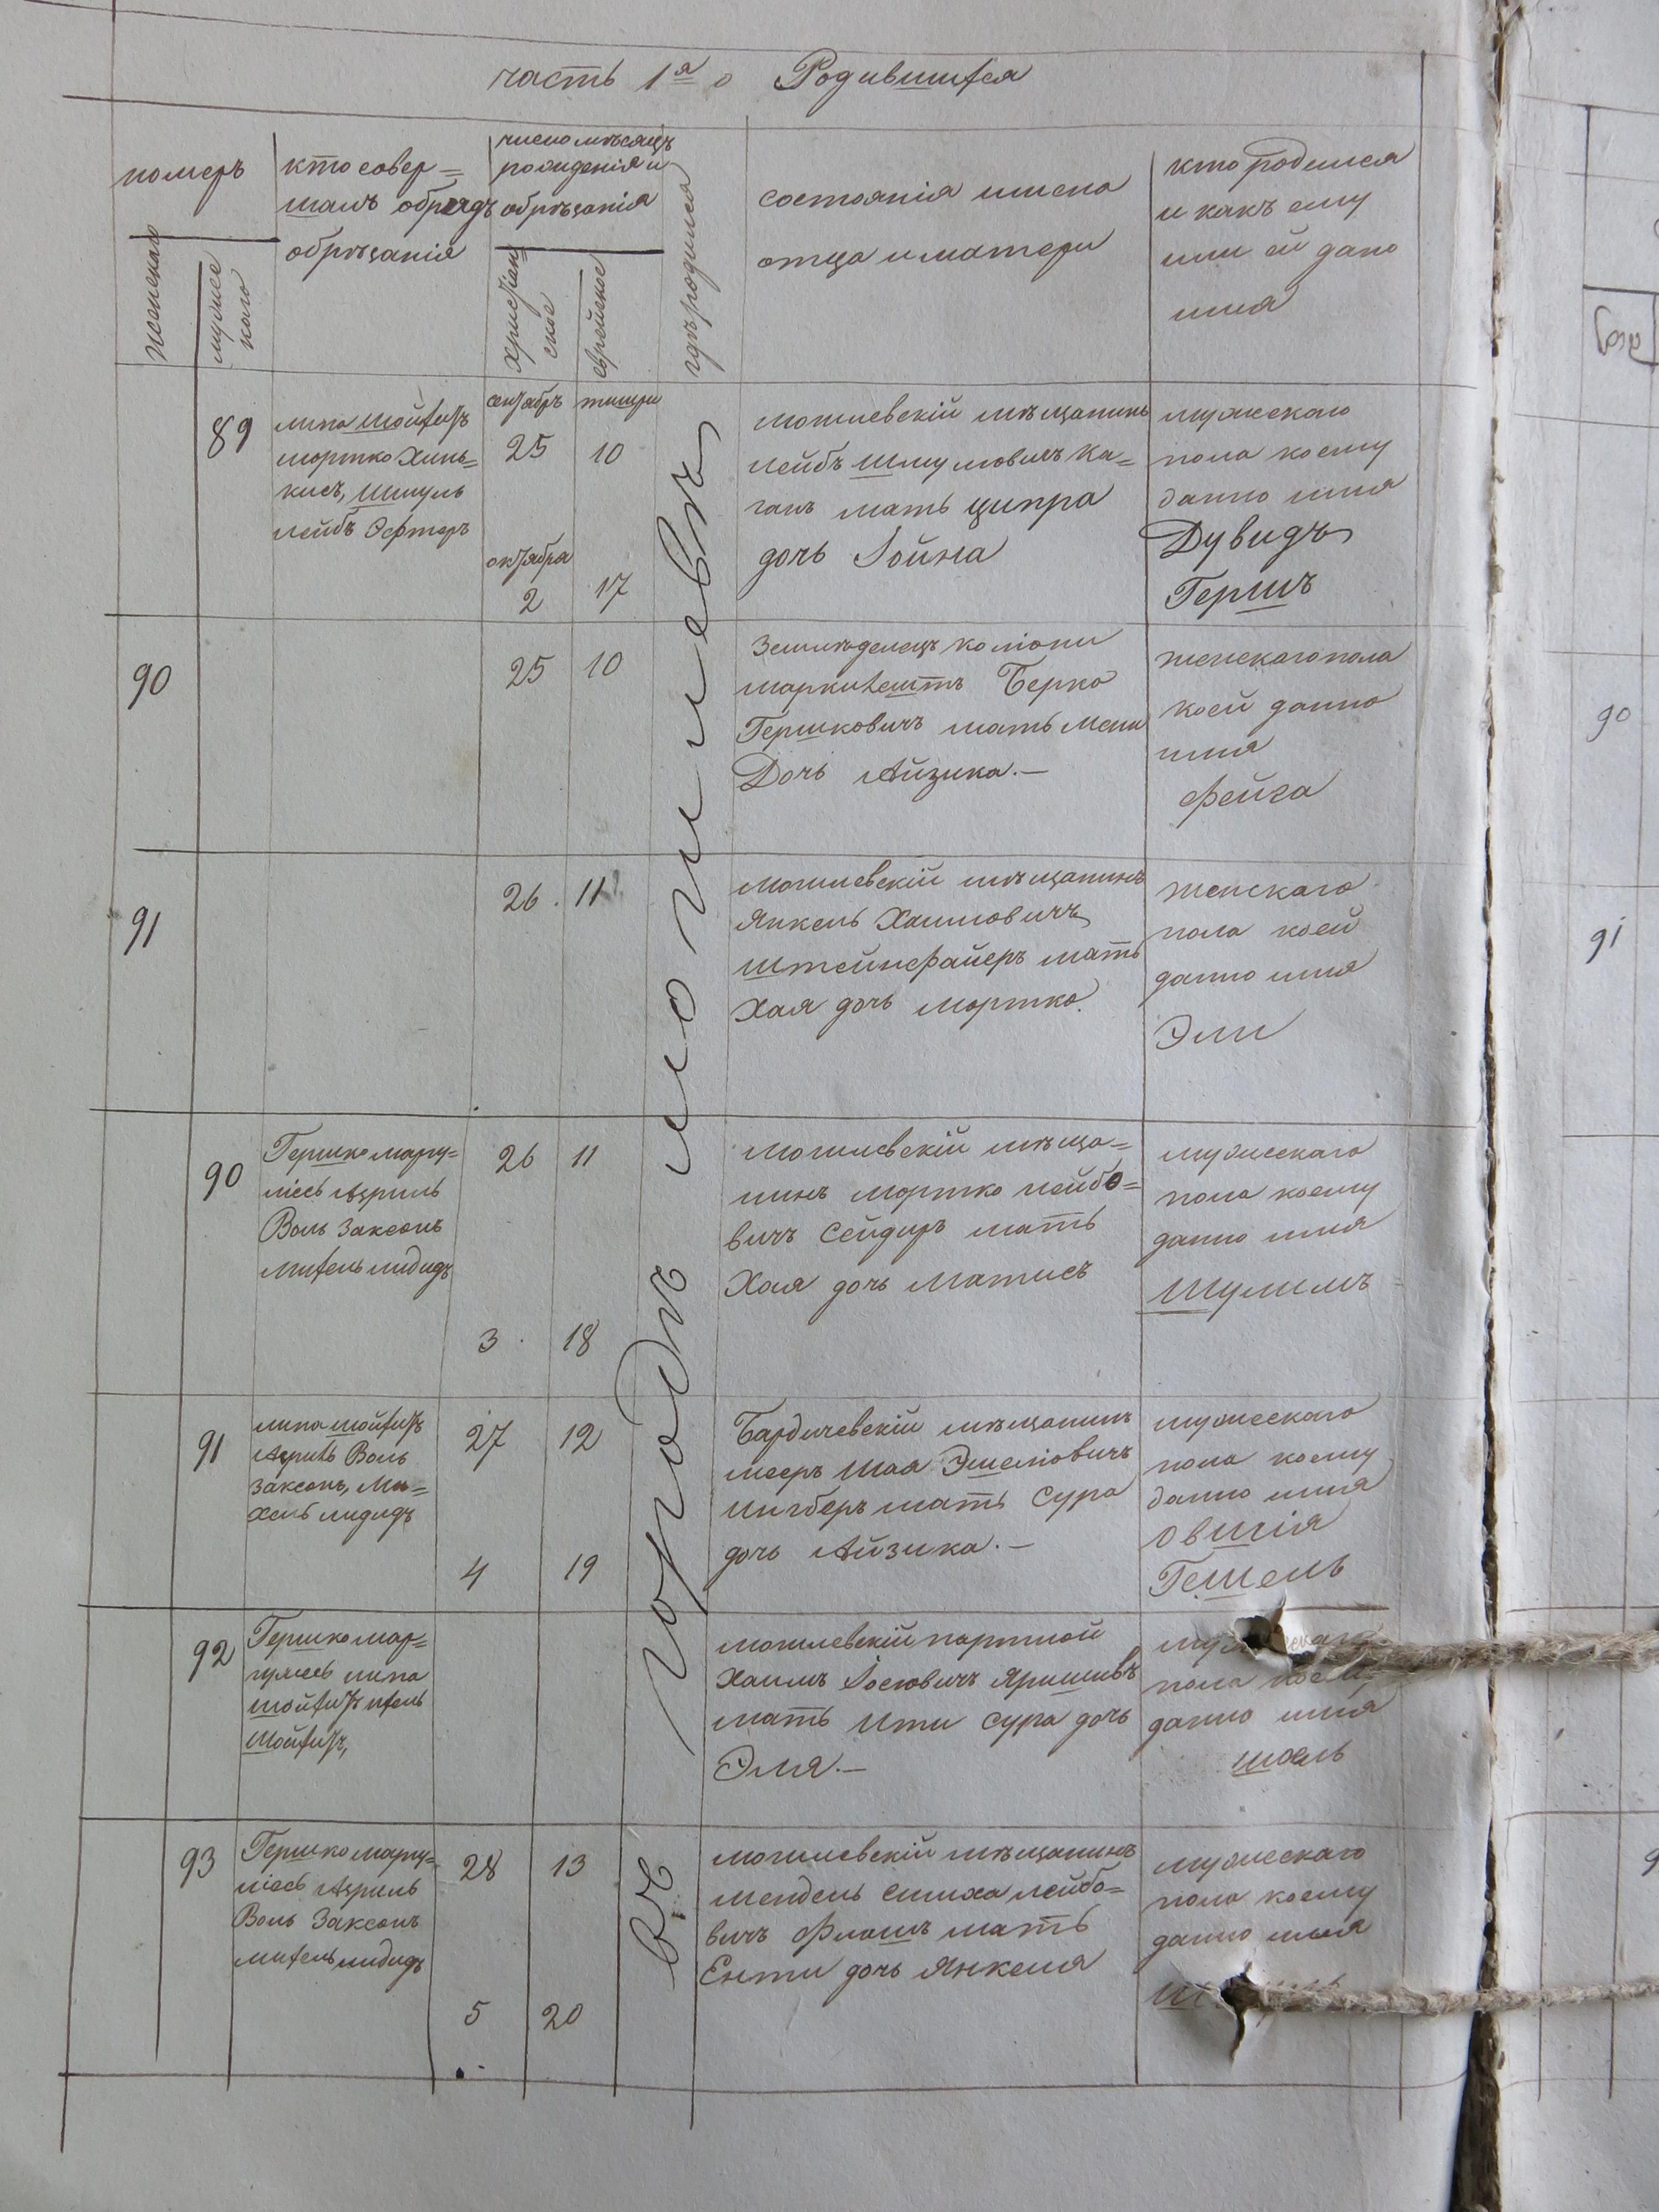 часть 1я о Родившихся
номеръ
женскаго
мужес
каго
кто совер=
шалъ обрядъ
обрѣзанія
число мѣсяцъ
рожденія и
обрѣзанія
христіан=
ское
еврейское
гдѣ родился
состоянія имена
отца и матери
кто родился
и какъ ему
или ей дано
имя
въ городѣ могилевѣ
89
липа шойхетъ
мортко Хинь=
кисъ, шмуль
лейбъ Эстеръ
сентябрь тишри
25 10
октября
2 17
могилевскій мѣщанинъ
лейбъ шмуловичъ Ка=
ганъ мать ципра
дочь Іойна
мужескаго
пола коему
данно имя
Дувидъ
Гершъ
90
25 10
Земледелецъ колоніи
маркулештъ Берко
Гершковичъ мать мени
Дочь Айзика.—
женскаго пола
коей данно
имя
Фейга
91
26 11
могилевскій мѣщанинъ
Янкель Хаимовичъ
штейнфайеръ мать
Хая дочь мортко.
женскаго
пола коей
данно имя
Эли
90
Гершко маргу=
ліесъ Азриль
Воль Заксонъ
михель лидидъ
26 11
3 18
могилевскій мѣща=
нинъ мортко лейбо=
вичъ Сейдиръ мать
Хая дочь Матисъ
мужескаго
пола коему
данно имя
Шулимъ
91
липа шойхетъ
Азриль Воль
заксонъ, Ми=
хель лидидъ
27 12
4 19
Бардичевскій мѣщанинъ
мееръ шая Эшелювичъ
Ингберъ мать Сура
дочь Айзика.—
мужескаго
пола коему
данно имя
Овшія
Гешель
92
Гершко мар=
гулиесъ липа
шойхетъ ихель
шойхетъ,
могилевскій портной
Хаимъ Іосювичъ Яришевъ
мать Ити Сура дочь
Эля.—
пола
данно имя
шоель
93
Гершко маргу=
ліесъ Азриль
Воль Заксонъ
михель лидидъ
28 13
5 20
могилевскій мѣщанинъ
мендель Симха лейбо=
вичъ Флошъ мать
Енти дочь Янкеля
мужескаго
пола коему
данно имя
90
91